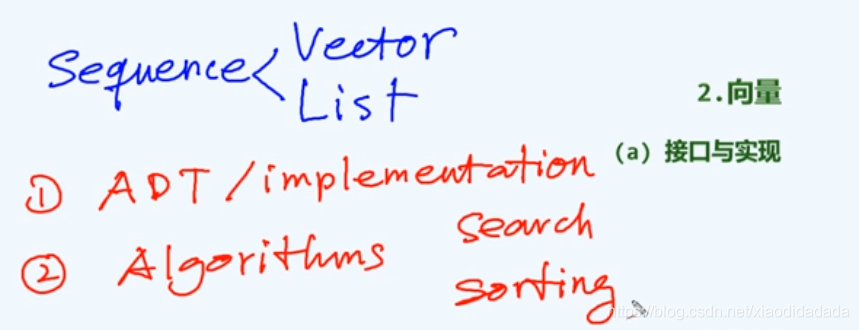 Sequence< Vector
List
2.向量
(a) 接口与实现
① ADT / implementation
② Algorithms search
sorting
https://blog.csdn.net/xiaodidadada